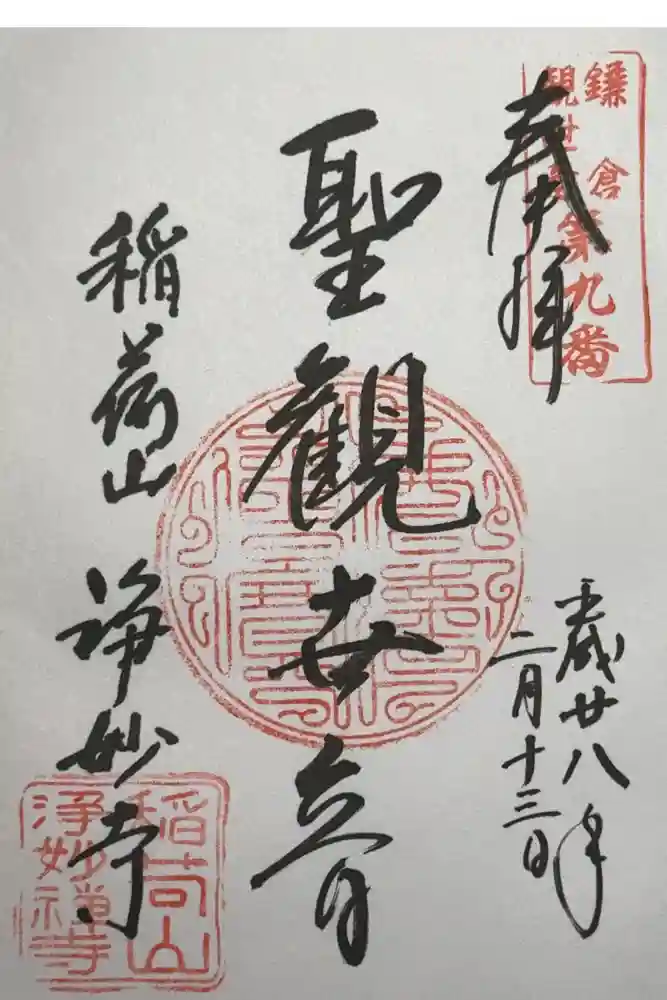 鎌倉
観世音第九番
奉拝
平成廿八年
二月十三日
聖観世音
稲荷山
浄妙寺
稲荷山
浄妙禅寺